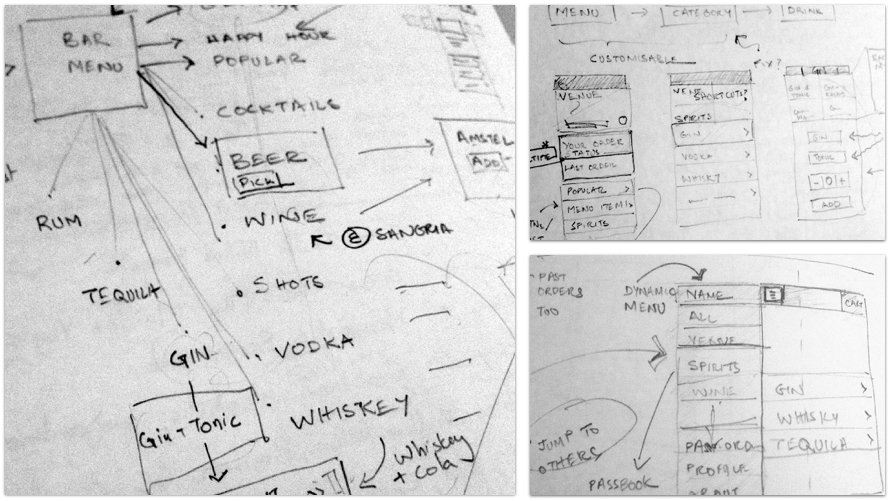 BAR
MENU
HAPPY HOUR
POPULAR
COCKTAILS
BEER
PICK
AMSTEL
ADD
WINE
SANGRIA
RUM
SHOTS
TEQUILA
GIN
VODKA
Gin + Tonic
WHISKEY
Whiskey
+ Cola
MENU
CATEGORY
DRINK
CUSTOMISABLE
FIX?
VENUE
YOUR ORDER
STATUS
LAST ORDER
POPULAR
MENU ITEM
SPIRITS
VENUE
SHORTCUTS?
SPIRITS
GIN
VODKA
WHISKY
GIN
GIN
TONIC
- 0 +
ADD
PAST
ORDERS
TOO
DYNAMIC
MENU
NAME
ALL
VENUE
SPIRITS
WINE
PROFILE
CART
GIN
WHISKY
TEQUILA
JUMP TO
OTHERS
PASSBOOK